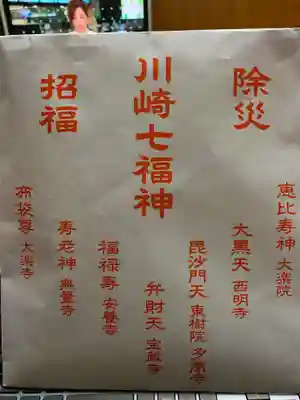 除災
川崎七福神
招福
恵比寿神 大楽院
大黒天 西明寺
毘沙門天 東樹院 多摩寺
弁財天 宝蔵寺
福禄寿 安養寺
寿老神 無量寺
布袋尊 大楽寺